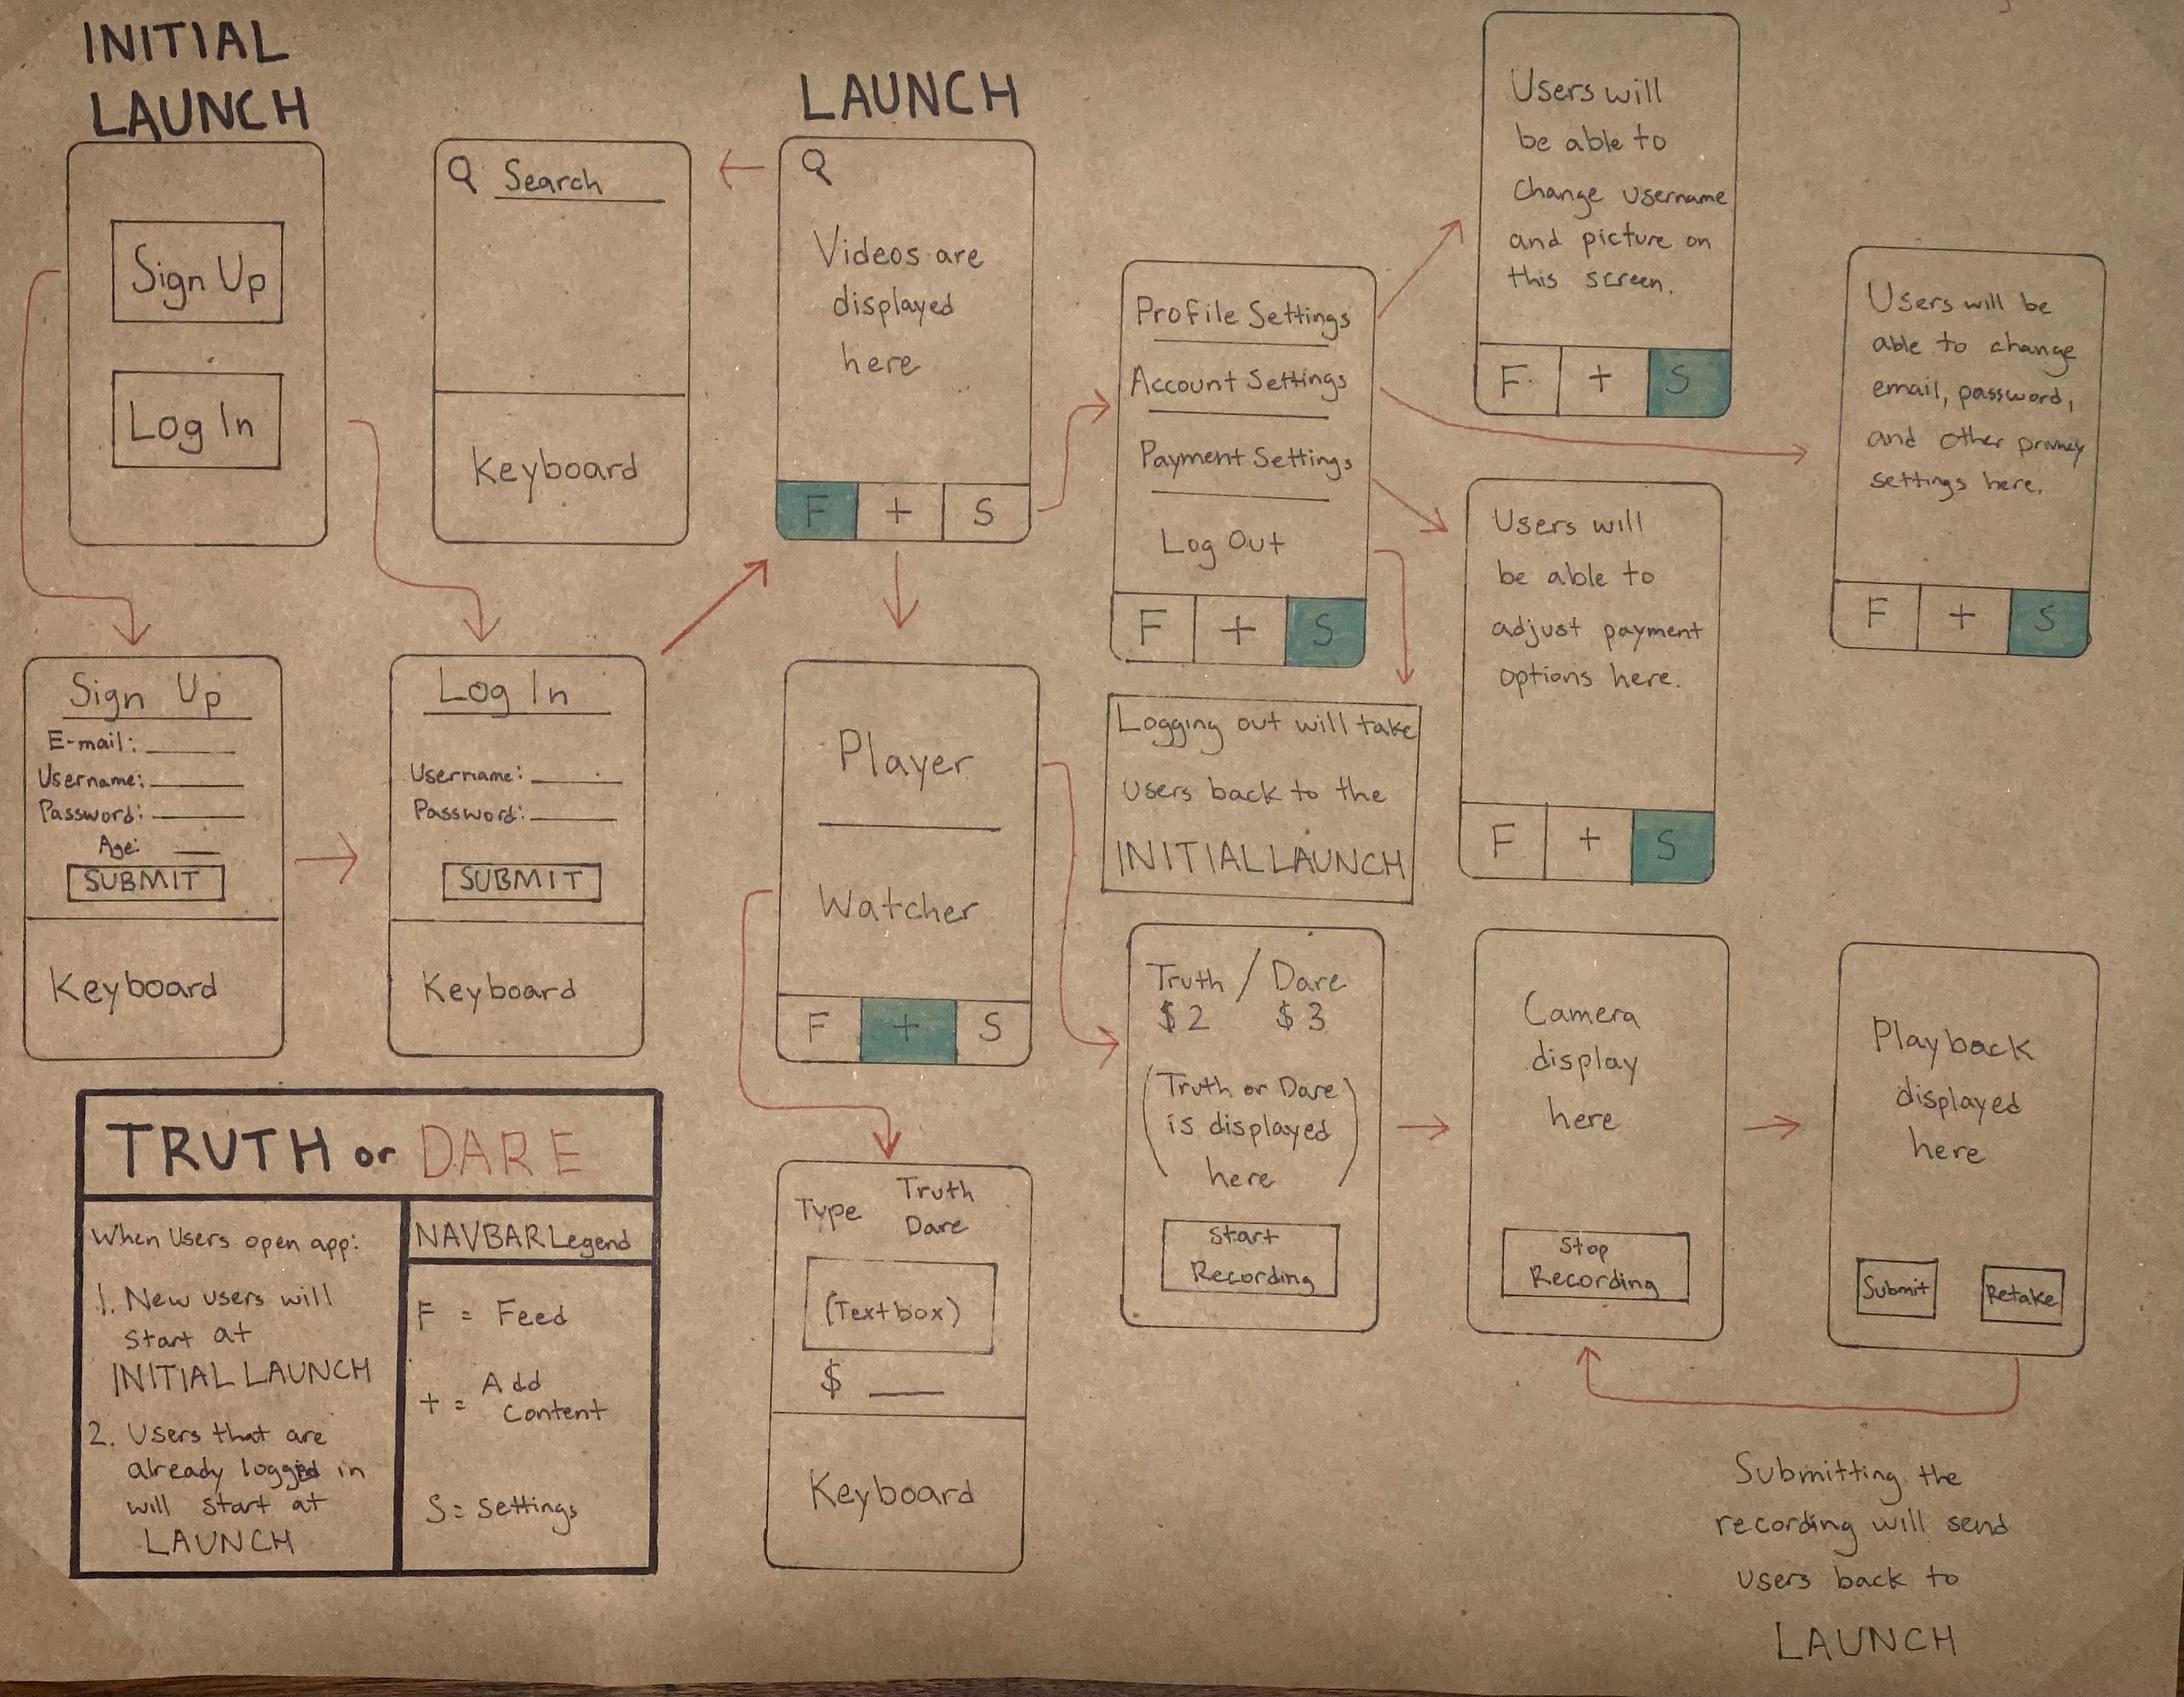 INITIAL
LAUNCH
Sign Up
Log In
Search
Keyboard
LAUNCH
Videos are
displayed
here
F + S
Profile Settings
Account Settings
Payment Settings
Log Out
F + S
Users will
be able to
change username
and picture on
this screen.
F + S
Users will be
able to change
email, password,
and other privacy
settings here.
F + S
Users will
be able to
adjust payment
options here.
F + S
Logging out will take
users back to the
INITIAL LAUNCH
Sign Up
E-mail:
Username:
Password:
Age:
SUBMIT
Keyboard
Log In
Username:
Password:
SUBMIT
Keyboard
Player
Watcher
F + S
Truth / Dare
$2 $3
(Truth or Dare
is displayed
here)
Start
Recording
Camera
display
here
Stop
Recording
Playback
displayed
here
Submit Retake
Submitting the
recording will send
users back to
LAUNCH
Type Truth
Dare
(Textbox)
$
Keyboard
TRUTH or DARE
When Users open app:
1. New users will
start at
INITIAL LAUNCH
2. Users that are
already logged in
will start at
LAUNCH
NAVBAR Legend
F = Feed
+ = Add
Content
S = Settings